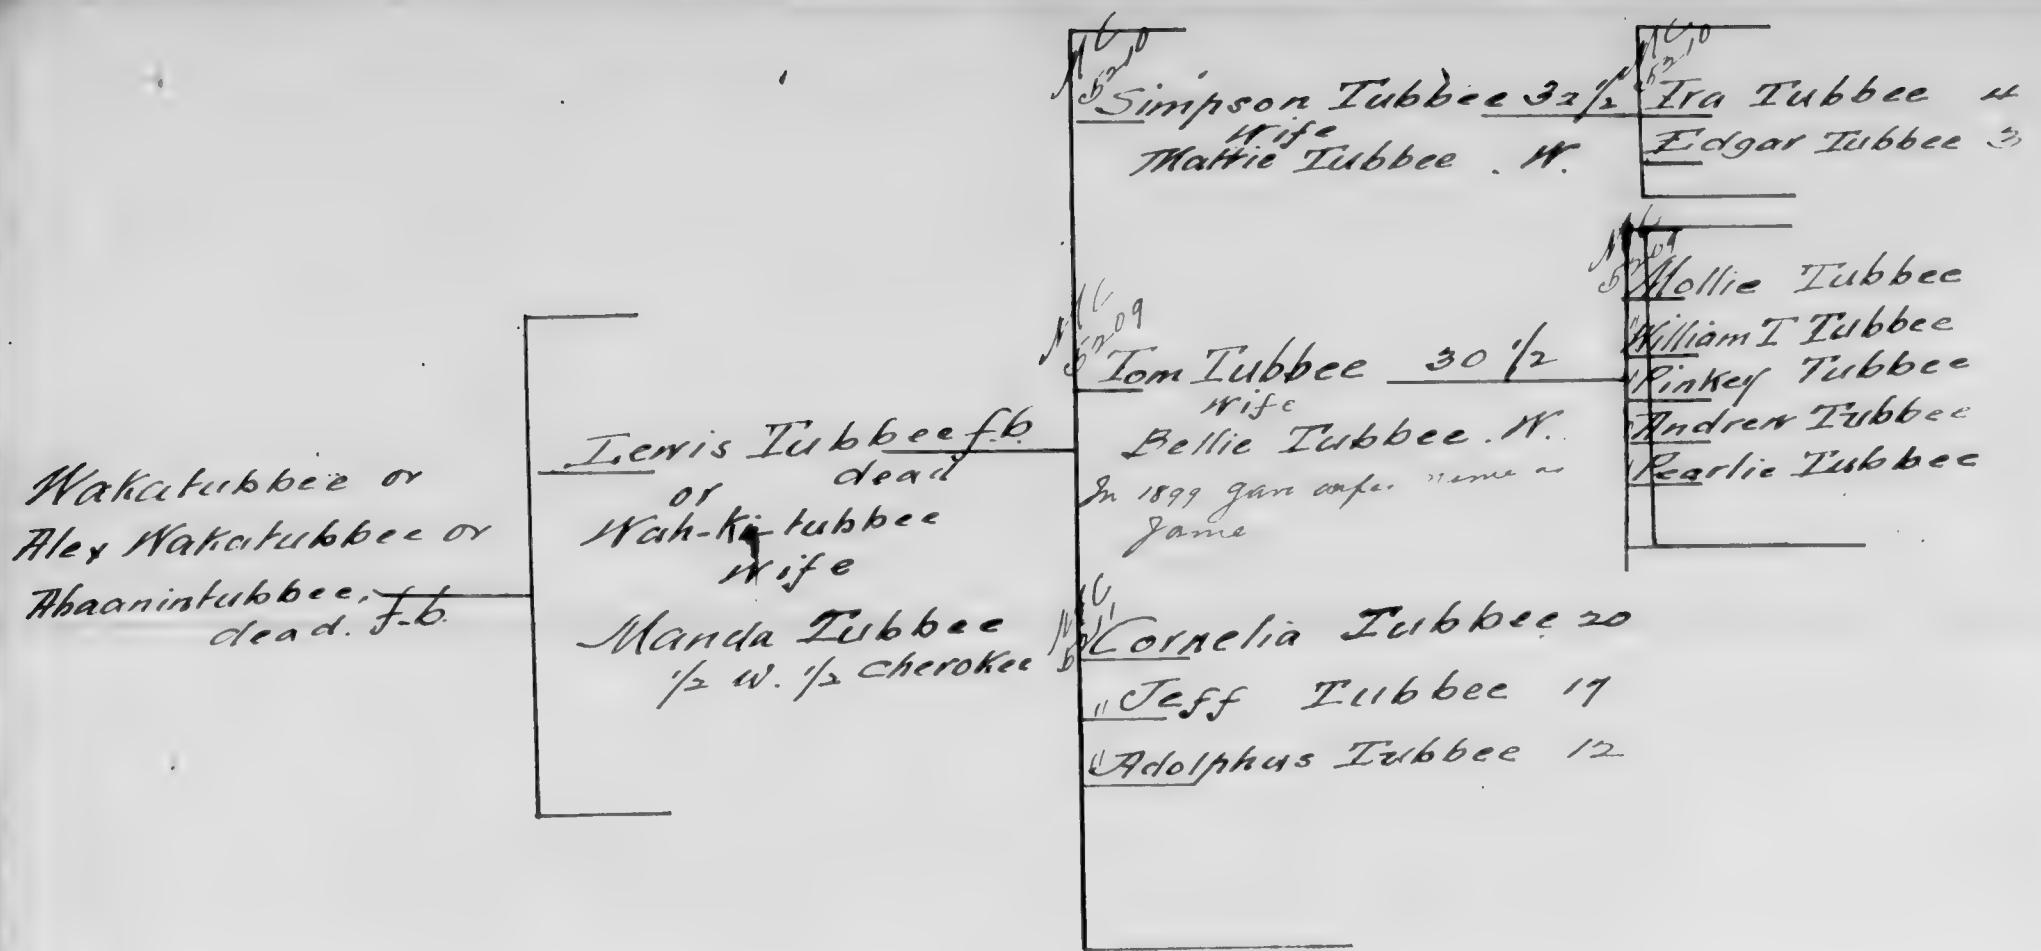 Wakatubbee or
Alex Wakatubbee or
Ahaanintubbee.
dead. f.b.
Lewis Tubbee f.b.
dead
or
Wah-ki-tubbee
Wife
Manda Tubbee
1/2 W. 1/2 Cherokee
M C
5210
Simpson Tubbee 32 1/2
Wife
Mattie Tubbee . W.
M C
5209
Tom Tubbee 30 1/2
Wife
Bellie Tubbee . W.
In 1899 gave name as
Jame
M C
521
Cornelia Tubbee 20
" Jeff Tubbee 17
" Adolphus Tubbee 12
M C
5210
Ira Tubbee 4
Edgar Tubbee 3
M C
5209
Mollie Tubbee
" William T Tubbee
" Pinkey Tubbee
" Andrew Tubbee
" Pearlie Tubbee